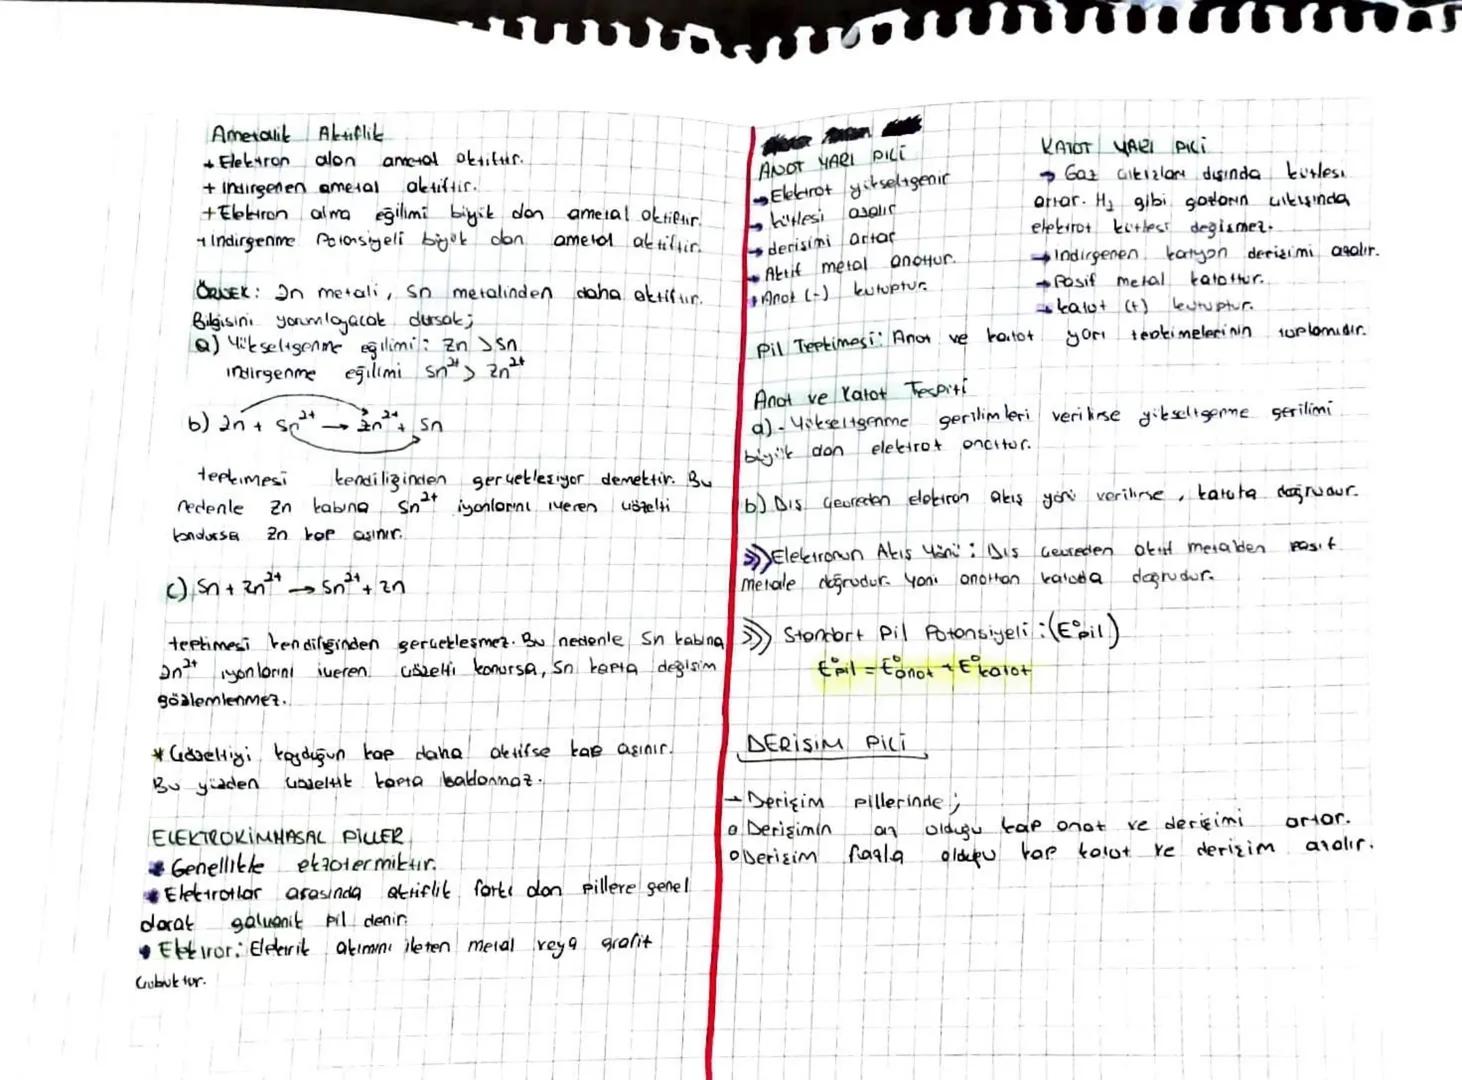 Ametalik Aktiflik
→ Elektron alan ametal aktiftir.
+ İndirgenen ametal aktiftir.
+ Elektron alma eğilimi büyük olan ametal aktiftir.
→ İndirgenme Potansiyeli büyük olan ametal aktiftir.
ÖRNEK: Zn metali, Sn metalinden daha aktiftir.
Bilgisini yorumlayacak olursak;
a) Yükseltgenme eğilimi: Zn > Sn
indirgenme eğilimi Sn²⁺ > Zn²⁺
b) Zn + Sn²⁺ → Zn²⁺ + Sn
tepkimesi kendiliğinden gerçekleşiyor demektir. Bu
nedenle Zn kabına Sn²⁺ iyonlarını içeren çözelti
konursa Zn kap aşınır.
c) Sn + Zn²⁺ → Sn²⁺ + Zn
tepkimesi kendiliğinden gerçekleşmez. Bu nedenle Sn kabına
Zn²⁺ iyonlarını içeren çözelti konursa, Sn kapta değişim
gözlemlenmez.
* Çözeltiyi koyduğun kap daha aktifse kap aşınır.
Bu yüzden çözeltik kapta saklanmaz.
ELEKTROKİMYASAL PİLLER
* Genellikle ekzotermiktir.
* Elektrotlar arasında aktiflik farkı olan pillere genel
olarak galvanik pil denir.
• Elektrot: Elektrik akımını ileten metal veya grafit
çubuktur.
ANOT YARI PİLİ
→ Elektrot yükseltgenir
→ kütlesi azalır
→ derişimi artar
→ Aktif metal anottur.
→ Anot (-) kutuptur.
KATOT YARI PİLİ
→ Gaz çıkışları dışında kütlesi
artar. H₂ gibi gazların çıkışında
elektrot kütlesi değişmez.
→ İndirgenen katyon derişimi azalır.
→ Pasif metal katottur.
→ katot (+) kutuptur.
Pil Tepkimesi: Anot ve katot yarı tepkimelerinin toplamıdır.
Anot ve Katot Tespiti
a) - Yükseltgenme gerilimleri verilirse yükseltgenme gerilimi
büyük olan elektrot anottur.
b) Dış çevreden elektron akış yönü verilirse, katota doğrudur.
>>> Elektronun Akış Yönü: Dış çevreden aktif metalden pasif
metale doğrudur. Yani anottan katoda doğrudur.
>>> Standart Pil Potansiyeli: (E°pil)
E°pil = E°anot + E°katot
DERİŞİM PİLİ
→ Derişim pillerinde;
o Derişimin az olduğu kap anot ve derişimi artar.
o Derişim fazla olduğu kap katot ve derişim azalır.